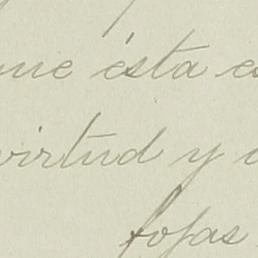 que ésta es
virtud y
fojas